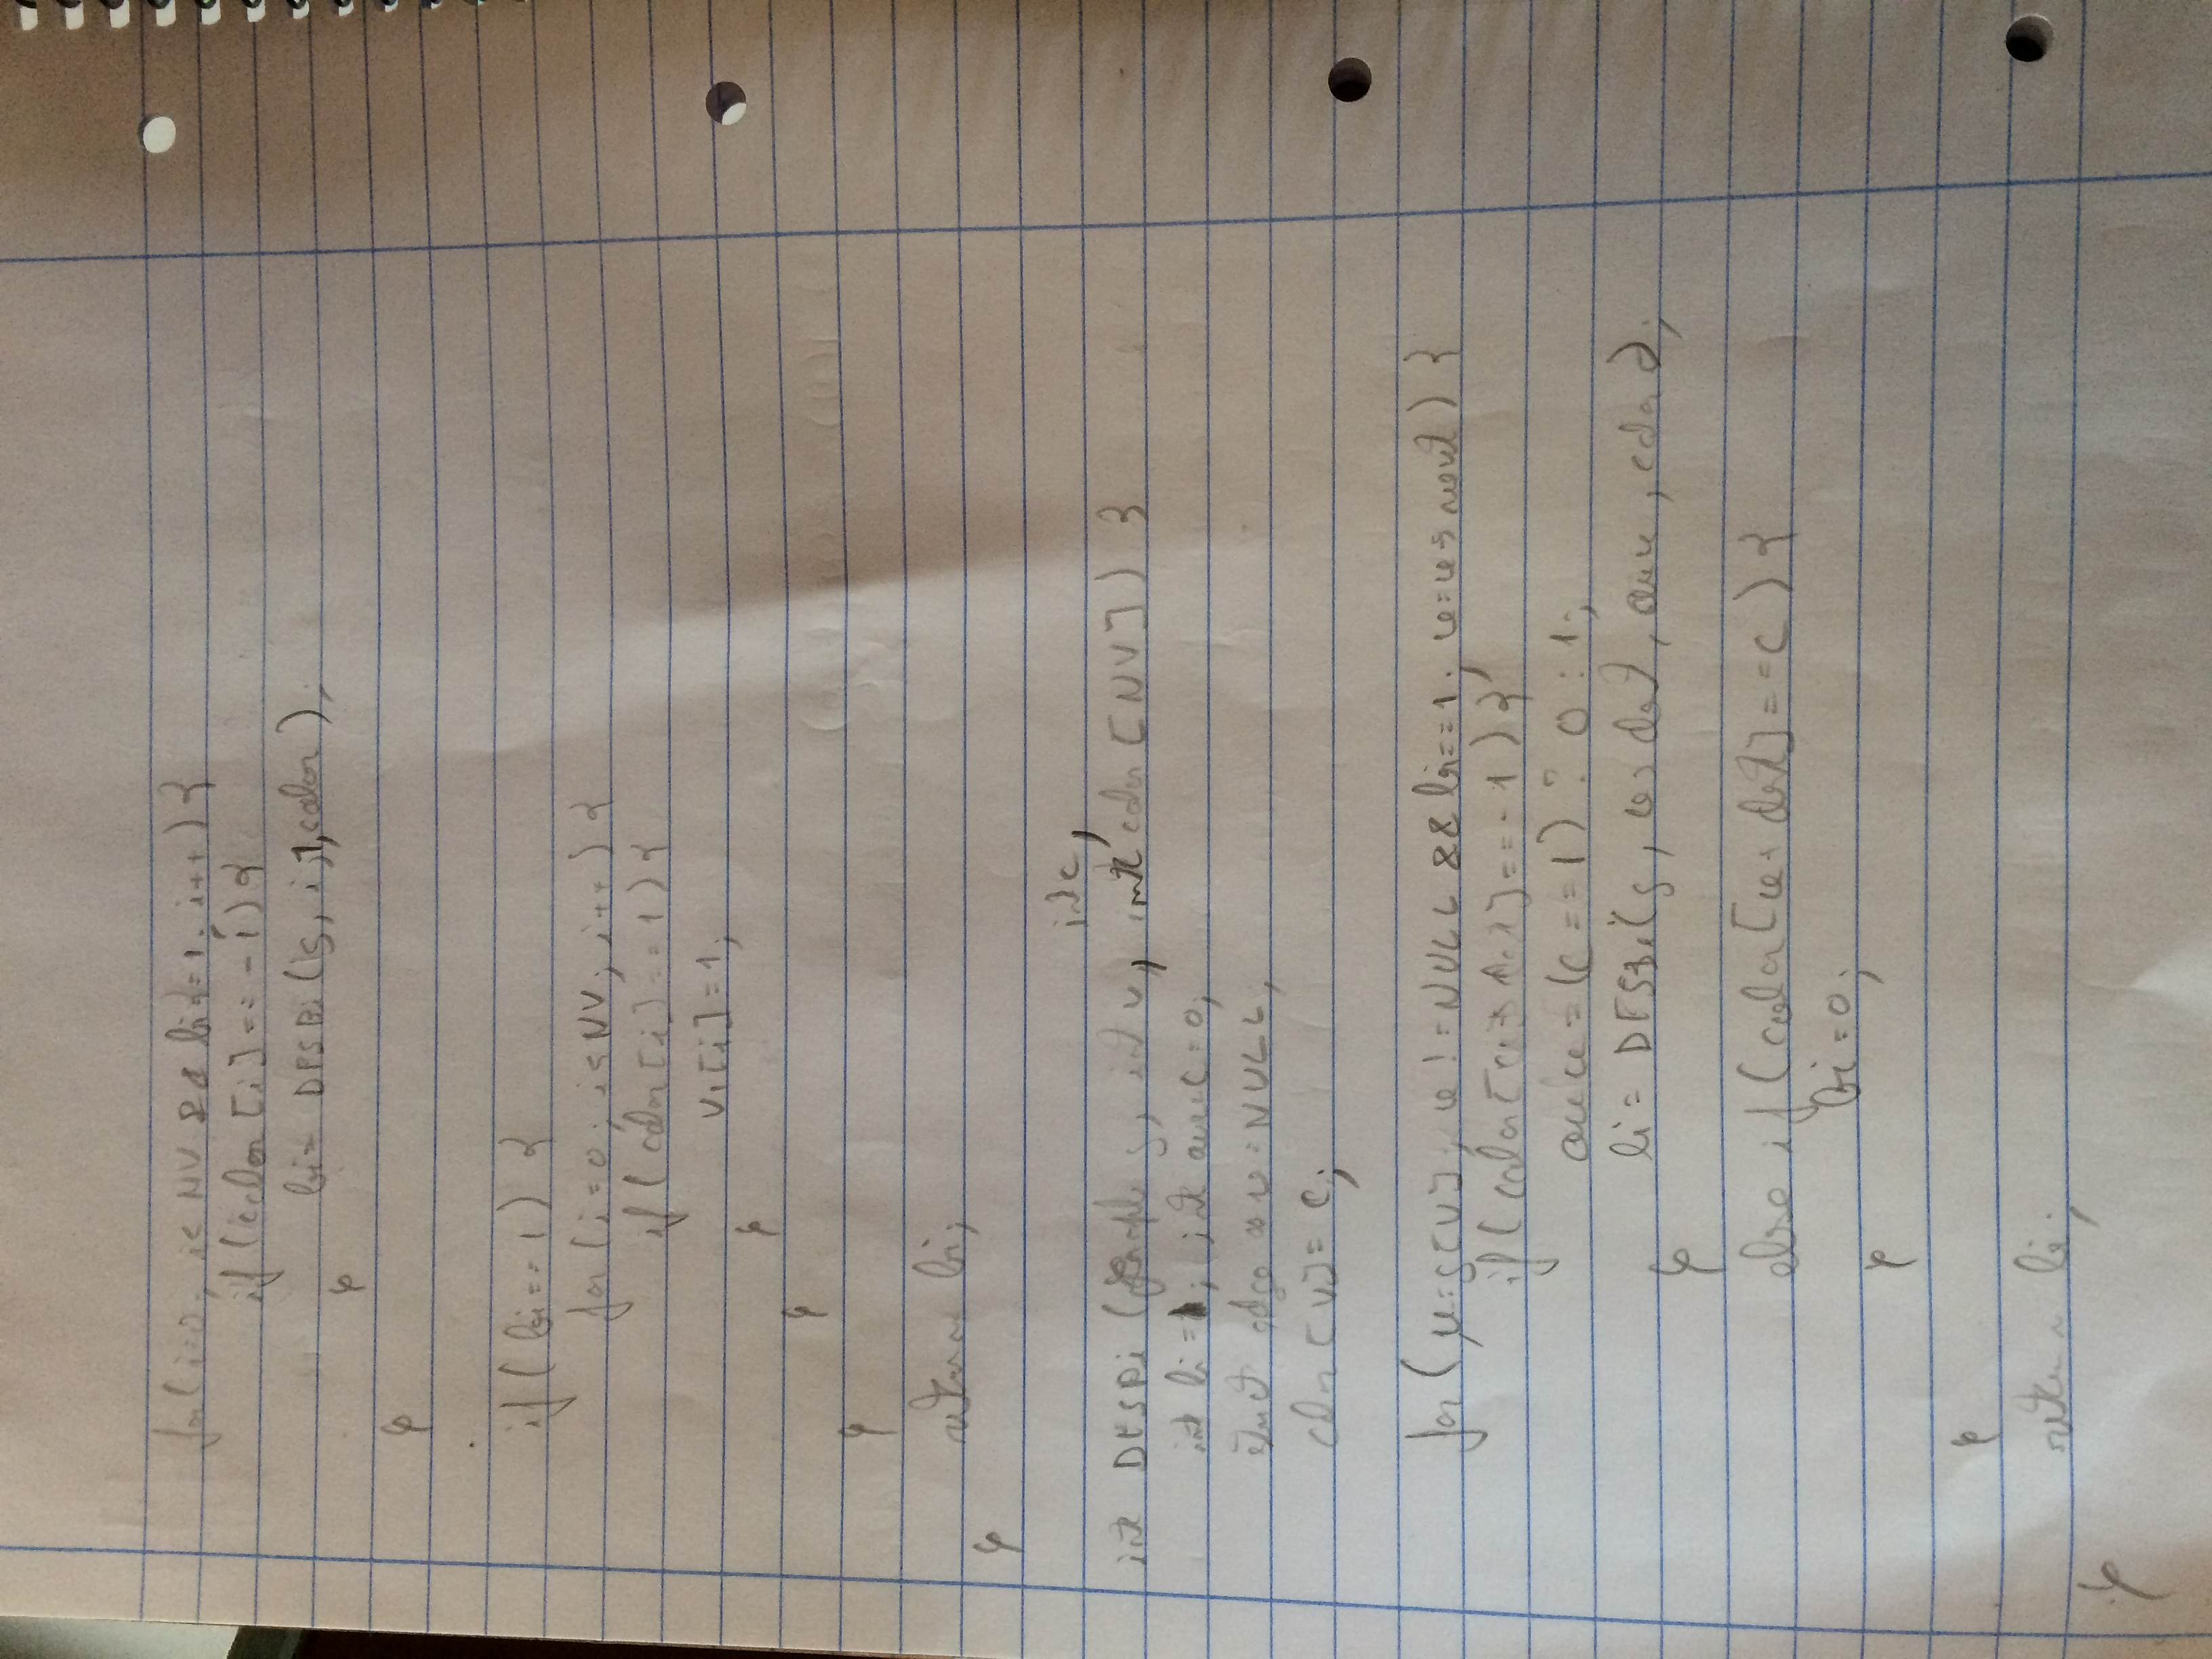 for (i=0; i< NV && bi==1; i++) {
if (color [i] == -1) {
bi= DFSBi (g, i, 1, color);
}
}
if (bi==1) {
for (i=0; i<NV; i++) {
if (color[i] == 1) {
v1[i]=1;
}
}
}
return bi;
}
int c,
int DFSBi ( g, int v, int color [NV]) {
int bi=1; int auxc=0;
struct edge *w=NULL;
color [v]= c;
for (w=g[v]; w!=NULL && bi==1; w=w->next) {
if (color[w->dest]==-1) {
= (c==1) ? 0 : 1;
bi= DFSBi(g, w->dest, , color);
}
else if (color[w->dest]==c) {
bi=0;
}
}
return bi;
}